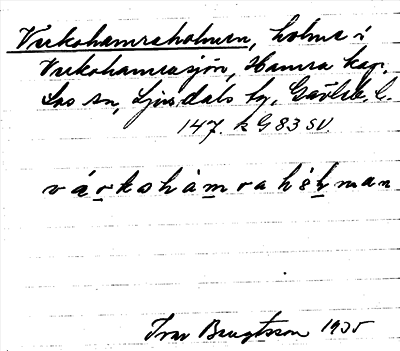 Virkohamraholmen, holme i
Virkohamrasjön, Hamra kap.
Los sn, Ljusdals tg, Gävleb. l.
147. k G 83 SV
várkohàmrahòḷman
Ivar Bengtsson 1935